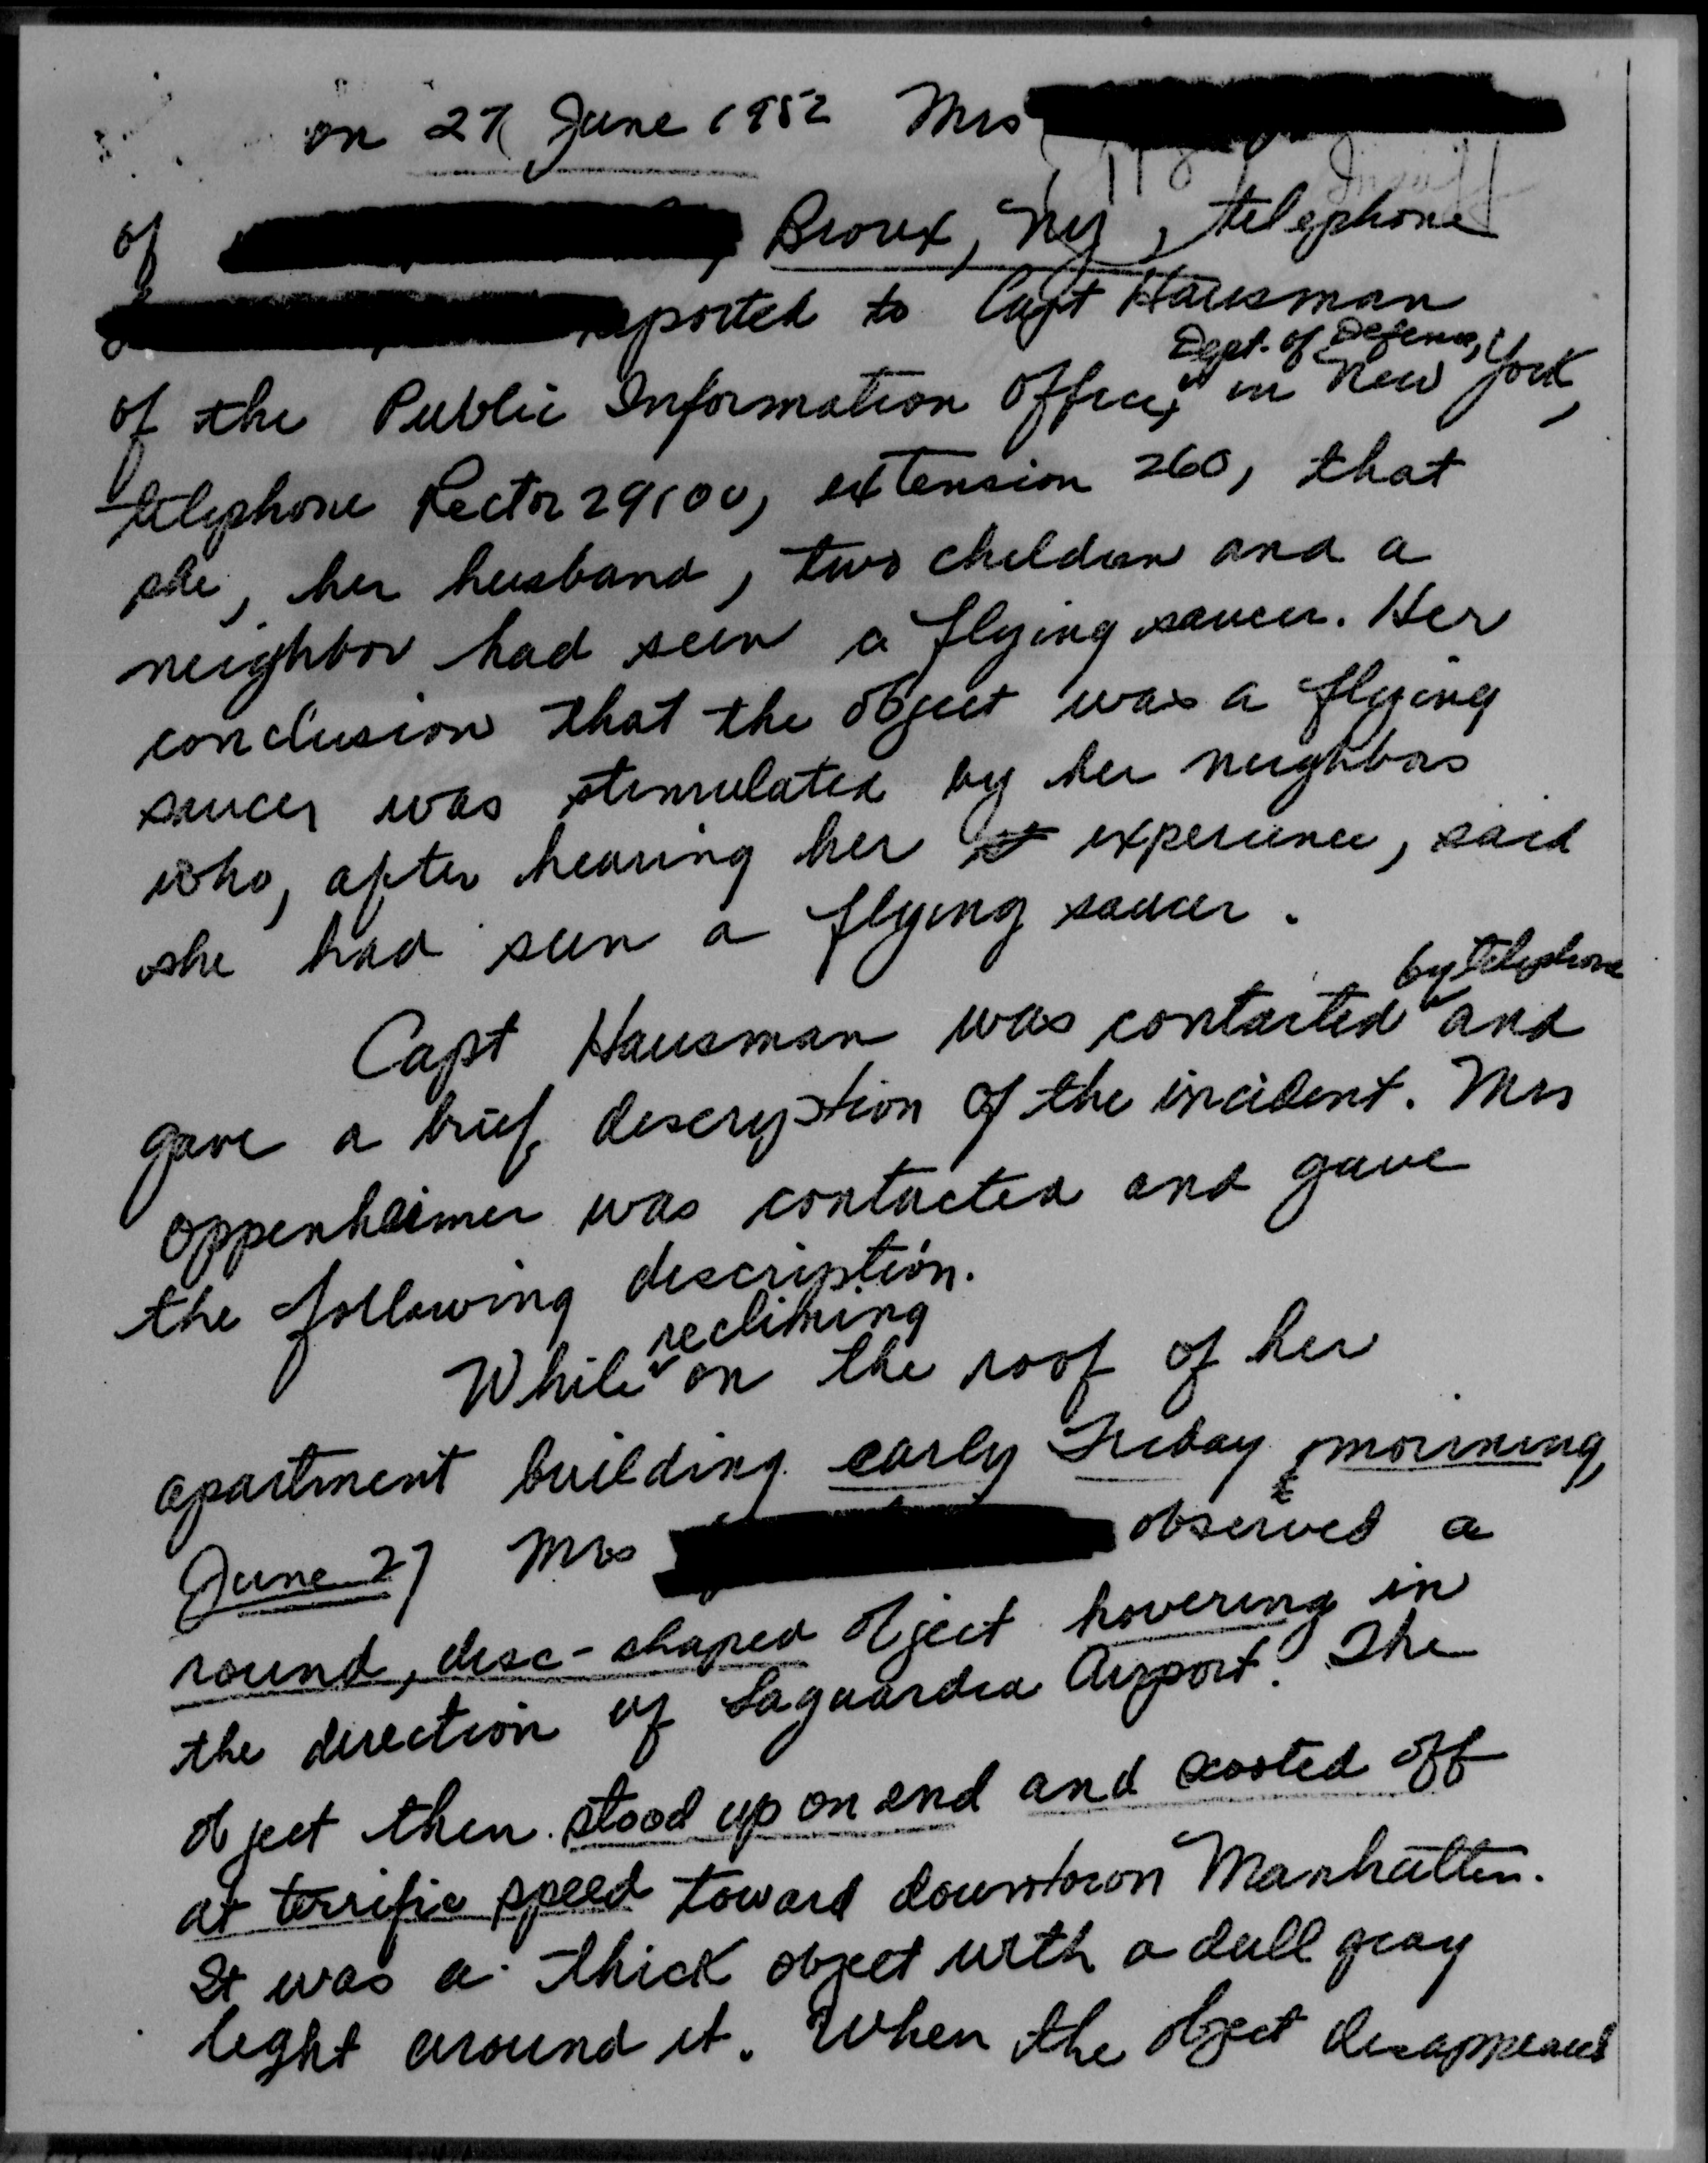 on 27 June 1952 Mrs
of , Bronx, Ny, telephone
reported to Capt Hausman
Dept. of Defense,
of the Public Information Office, in New York,
telephone Rector 29100, extension 260, that
she, her husband, two children and a
neighbor had seen a flying saucer. Her
conclusion that the object was a flying
saucer was stimulated by her neighbors
who, after hearing her experience, said
she had seen a flying saucer.
by telephone
Capt Hausman was contacted and
gave a brief description of the incident. Mrs
Oppenheimer was contacted and gave
the following description.
reclining
While on the roof of her
apartment building early Friday morning,
June 27 Mrs observed a
round, disc-shaped object hovering in
the direction of Laguardia Airport. The
object then stood up on end and scooted off
at terrific speed toward downtown Manhatten.
It was a thick object with a dull gray
light around it. When the object disappeared